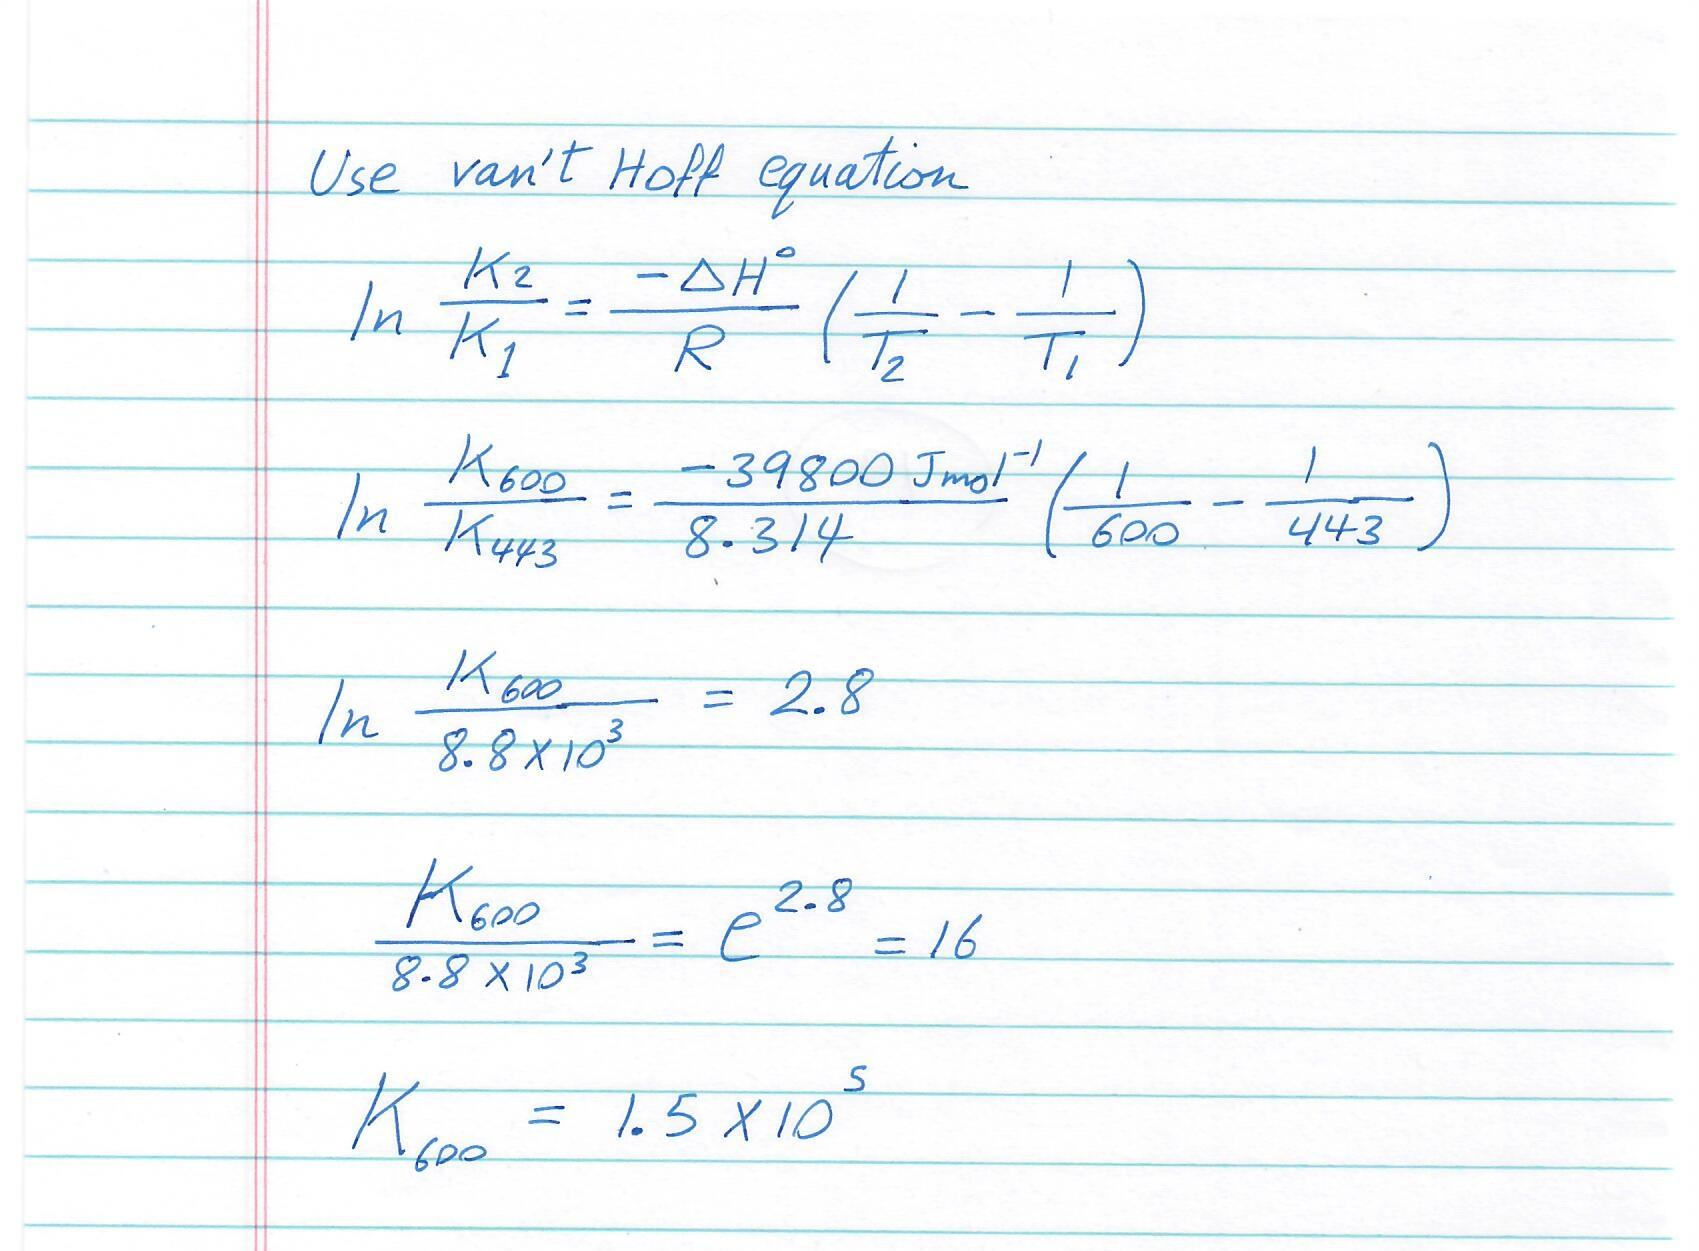 Use van't Hoff equation
ln K₂/K₁ = -ΔH°/R (1/T₂ - 1/T₁)
ln K₆₀₀/K₄₄₃ = -39800 Jmol⁻¹/8.314 (1/600 - 1/443)
ln K₆₀₀/8.8×10³ = 2.8
K₆₀₀/8.8×10³ = e^2.8 = 16
K₆₀₀ = 1.5×10⁵